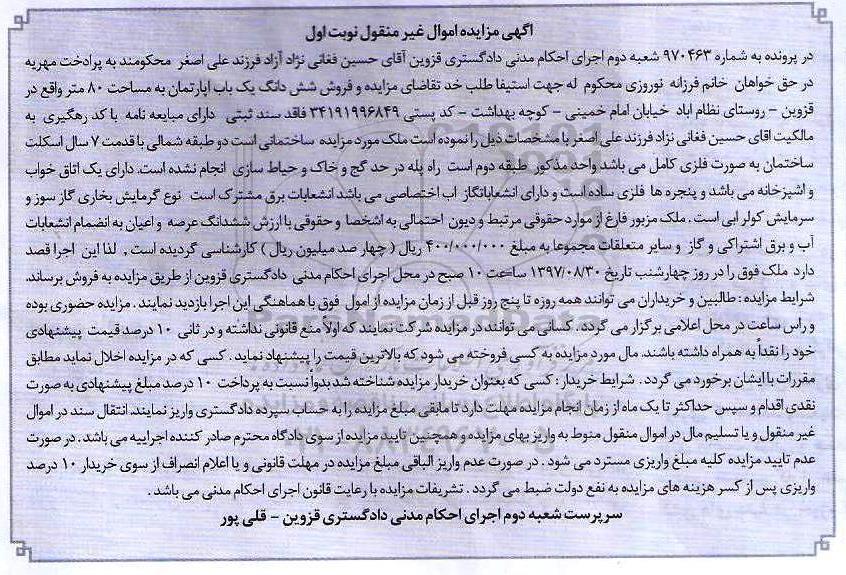 آگهی مزایده اموال غیر منقول نوبت اول
در پرونده به شماره ۹۷۰۴۶۳ شعبه دوم اجرای احکام مدنی دادگستری قزوین آقای حسین فغانی نژاد آزاد فرزند علی اصغر محکومند به پرادخت مهریه
در حق خواهان خانم فرزانه نوروزی محکوم له جهت استیفا طلب خد تقاضای مزایده و فروش شش دانگ یک باب اپارتمان به مساحت ۸۰ متر واقع در
قزوین - روستای نظام اباد خیابان امام خمینی - کوچه بهداشت - کد پستی ۳۴۱۹۱۹۹۶۸۴۹ فاقد سند ثبتی دارای مبایعه نامه با کد رهگیری به
مالکیت اقای حسین فغانی نژاد فرزند علی اصغر با مشخصات ذیل را نموده است ملک مورد مزایده ساختمانی است دو طبقه شمالی با قدمت ۷ سال اسکلت
ساختمان به صورت فلزی کامل می باشد واحد مذکور طبقه دوم است راه پله در حد گچ و خاک و حیاط سازی انجام نشده است. دارای یک اتاق خواب
و اشپزخانه می باشد و پنجره ها فلزی ساده است و دارای انشعاباتگاز اب اختصاصی می باشد انشعابات برق مشترک است نوع گرمایش بخاری گاز سوز و
سرمایش کولر ابی است . ملک مزبور فارغ از موارد حقوقی مرتبط و دیون احتمالی به اشخصا و حقوقی با ارزش ششدانگ عرصه و اعیان به انضمام انشعابات
آب و برق اشتراکی و گاز و سایر متعلقات مجموعا به مبلغ ۴۰۰/۰۰۰/۰۰۰ ریال ( چهار صد میلیون ریال ) کارشناسی گردیده است , لذا این اجرا قصد
دارد ملک فوق را در روز چهارشنبه تاریخ ۱۳۹۷/۰۸/۳۰ ساعت ۱۰ صبح در محل اجرای احکام مدنی دادگستری قزوین از طریق مزایده به فروش برساند.
شرایط مزایده : طالبین و خریداران می توانند همه روزه تا پنج روز قبل از زمان مزایده از امول فوق با هماهنگی این اجرا بازدید نمایند . مزایده حضوری بوده
و راس ساعت در محل اعلامی برگزار می گردد. کسانی می توانند در مزایده شرکت نمایند که اولاً منع قانونی نداشته و در ثانی ۱۰ درصد قیمت پیشنهادی
خود را نقداً به همراه داشته باشند. مال مورد مزایده به کسی فروخته می شود که بالاترین قیمت را پیشنهاد نماید . کسی که در مزایده اخلال نماید مطابق
مقررات با ایشان برخورد می گردد . شرایط خریدار : کسی که بعنوان خریدار مزایده شناخته شد بدواً نسبت به پرداخت ۱۰ درصد مبلغ پیشنهادی به صورت
نقدی اقدام و سپس حداکثر تا یک ماه از زمان انجام مزایده مهلت دارد تا مابقی مبلغ مزایده را به حساب سپرده دادگستری واریز نمایند. انتقال سند در اموال
غیر منقول و یا تسلیم مال در اموال منقول منوط به واریز بهای مزایده و همچنین تایید مزایده از سوی دادگاه محترم صادر کننده اجراییه می باشد . در صورت
عدم تایید مزایده کلیه مبلغ واریزی مسترد می شود . در صورت عدم واریز الباقی مبلغ مزایده در مهلت قانونی و یا اعلام انصراف از سوی خریدار ۱۰ درصد
واریزی پس از کسر هزینه های مزایده به نفع دولت ضبط می گردد . تشریفات مزایده با رعایت قانون اجرای احکام مدنی می باشد .
سرپرست شعبه دوم اجرای احکام مدنی دادگستری قزوین - قلی پور